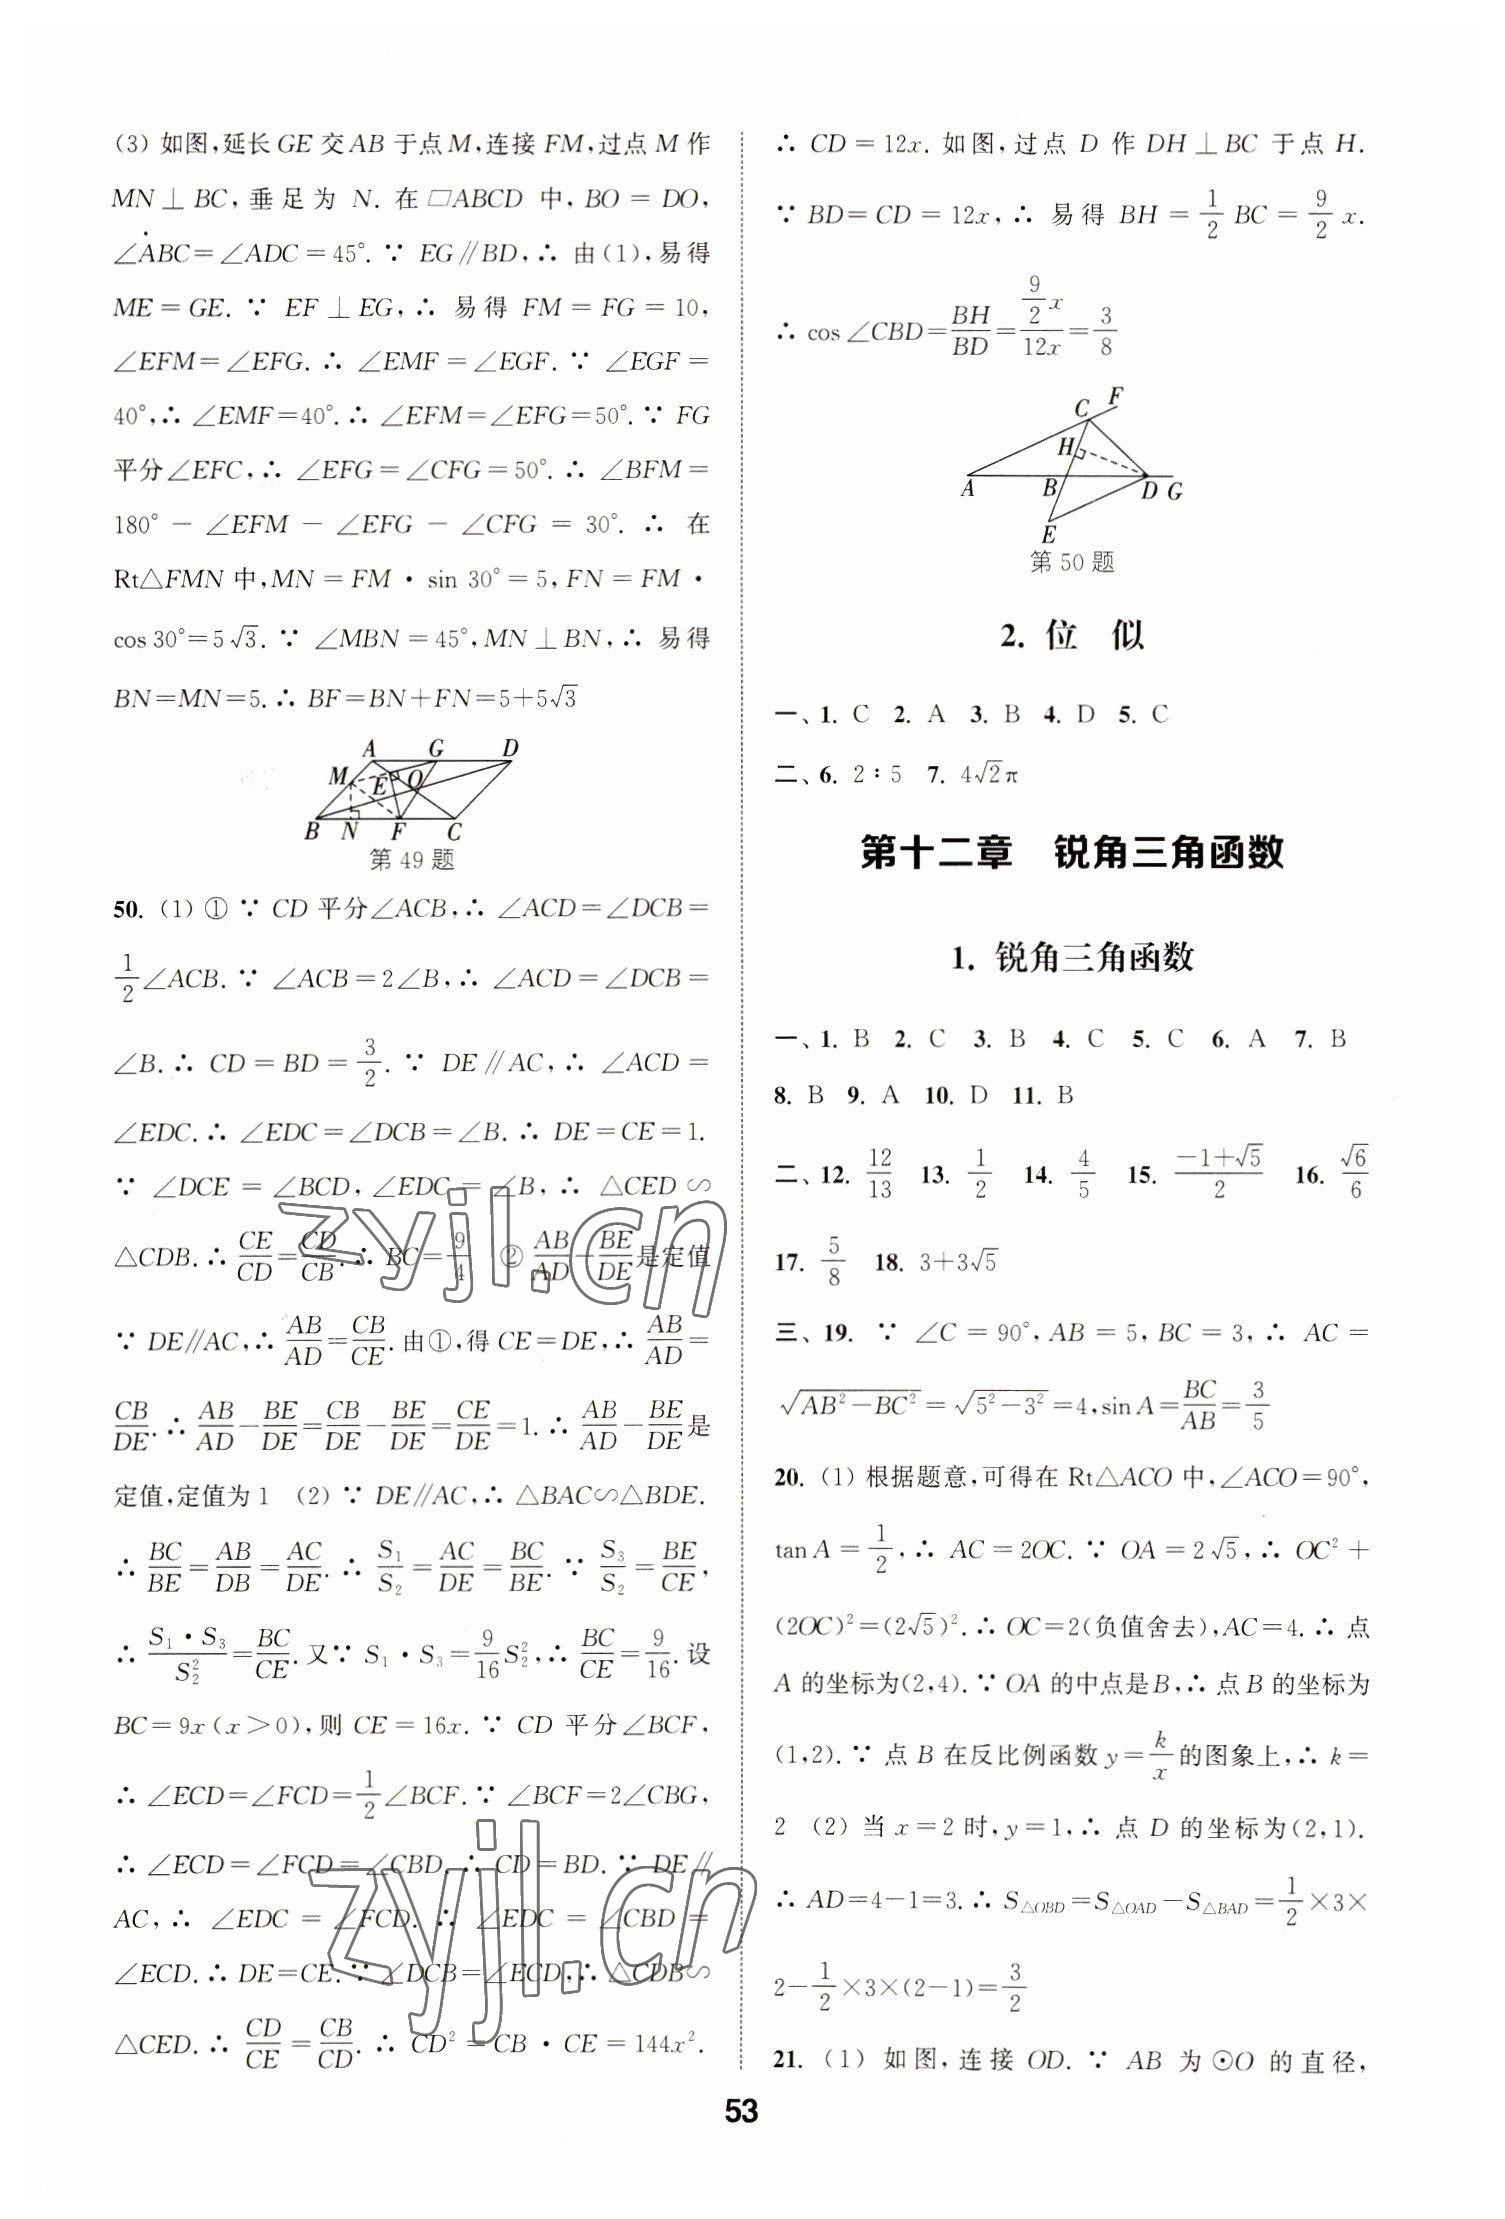 (3) 如图,延长 GE 交 AB 于点 M,连接 FM,过点 M 作
MN⊥BC,垂足为 N. 在▱ABCD 中,BO=DO,
∠ABC=∠ADC=45°. ∵ EG∥BD,∴ 由(1),易得
ME=GE. ∵ EF⊥EG,∴ 易得 FM=FG=10,
∠EFM=∠EFG. ∴ ∠EMF=∠EGF. ∵ ∠EGF=
40°,∴ ∠EMF=40°. ∴ ∠EFM=∠EFG=50°. ∵ FG
平分∠EFC,∴ ∠EFG=∠CFG=50°. ∴ ∠BFM=
180°-∠EFM-∠EFG-∠CFG=30°. ∴ 在
Rt△FMN 中,MN=FM·sin 30°=5,FN=FM·
cos 30°=5√3. ∵ ∠MBN=45°,MN⊥BN,∴ 易得
BN=MN=5. ∴ BF=BN+FN=5+5√3
A G D
M E O
B N F C
第 49 题
50. (1) ① ∵ CD 平分∠ACB,∴ ∠ACD=∠DCB=
1/2∠ACB. ∵ ∠ACB=2∠B,∴ ∠ACD=∠DCB=
∠B. ∴ CD=BD=3/2. ∵ DE∥AC,∴ ∠ACD=
∠EDC. ∴ ∠EDC=∠DCB=∠B. ∴ DE=CE=1.
∵ ∠DCE=∠BCD,∠EDC=∠B,∴ △CED∽
△CDB. ∴ CE/CD=CD/CB. ∴ BC=9/4 ② AB/AD-BE/DE是定值
∵ DE∥AC,∴ AB/AD=CB/CE. 由①,得 CE=DE,∴ AB/AD=
CB/DE. ∴ AB/AD-BE/DE=CB/DE-BE/DE=CE/DE=1. ∴ AB/AD-BE/DE是
定值,定值为 1 (2) ∵ DE∥AC,∴ △BAC∽△BDE.
∴ BC/BE=AB/DB=AC/DE. ∴ S₁/S₂=AC/DE=BC/BE. ∵ S₃/S₂=BE/CE,
∴ S₁·S₃/S₂²=BC/CE. 又∵ S₁·S₃=9/16 S₂²,∴ BC/CE=9/16. 设
BC=9x(x>0),则 CE=16x. ∵ CD 平分∠BCF,
∴ ∠ECD=∠FCD=1/2∠BCF. ∵ ∠BCF=2∠CBG,
∴ ∠ECD=∠FCD=∠CBD. ∴ CD=BD. ∵ DE∥
AC,∴ ∠EDC=∠FCD. ∴ ∠EDC=∠CBD=
∠ECD. ∴ DE=CE. ∵ ∠DCB=∠ECD,∴ △CDB∽
△CED. ∴ CD/CE=CB/CD. ∴ CD²=CB·CE=144x².
∴ CD=12x. 如图,过点 D 作 DH⊥BC 于点 H.
∵ BD=CD=12x,∴ 易得 BH=1/2 BC=9/2 x.
∴ cos∠CBD=BH/BD=(9/2 x)/12x=3/8
C F
H
A B D G
E
第 50 题
2. 位 似
一、1. C 2. A 3. B 4. D 5. C
二、6. 2∶5 7. 4√2π
第十二章 锐角三角函数
1. 锐角三角函数
一、1. B 2. C 3. B 4. C 5. C 6. A 7. B
8. B 9. A 10. D 11. B
二、12. 12/13 13. 1/2 14. 4/5 15. (-1+√5)/2 16. √6/6
17. 5/8 18. 3+3√5
三、19. ∵ ∠C=90°,AB=5,BC=3,∴ AC=
√(AB²-BC²)=√(5²-3²)=4,sin A=BC/AB=3/5
20. (1) 根据题意,可得在 Rt△ACO 中,∠ACO=90°,
tan A=1/2,∴ AC=2OC. ∵ OA=2√5,∴ OC²+
(2OC)²=(2√5)². ∴ OC=2(负值舍去),AC=4. ∴ 点
A 的坐标为(2,4). ∵ OA 的中点是 B,∴ 点 B 的坐标为
(1,2). ∵ 点 B 在反比例函数 y=k/x 的图象上,∴ k=
2 (2) 当 x=2 时,y=1,∴ 点 D 的坐标为(2,1).
∴ AD=4-1=3. ∴ S△OBD=S△OAD-S△BAD=1/2×3×
2-1/2×3×(2-1)=3/2
21. (1) 如图,连接 OD. ∵ AB 为⊙O 的直径,
53
zyjl.cn
zyjl.cn